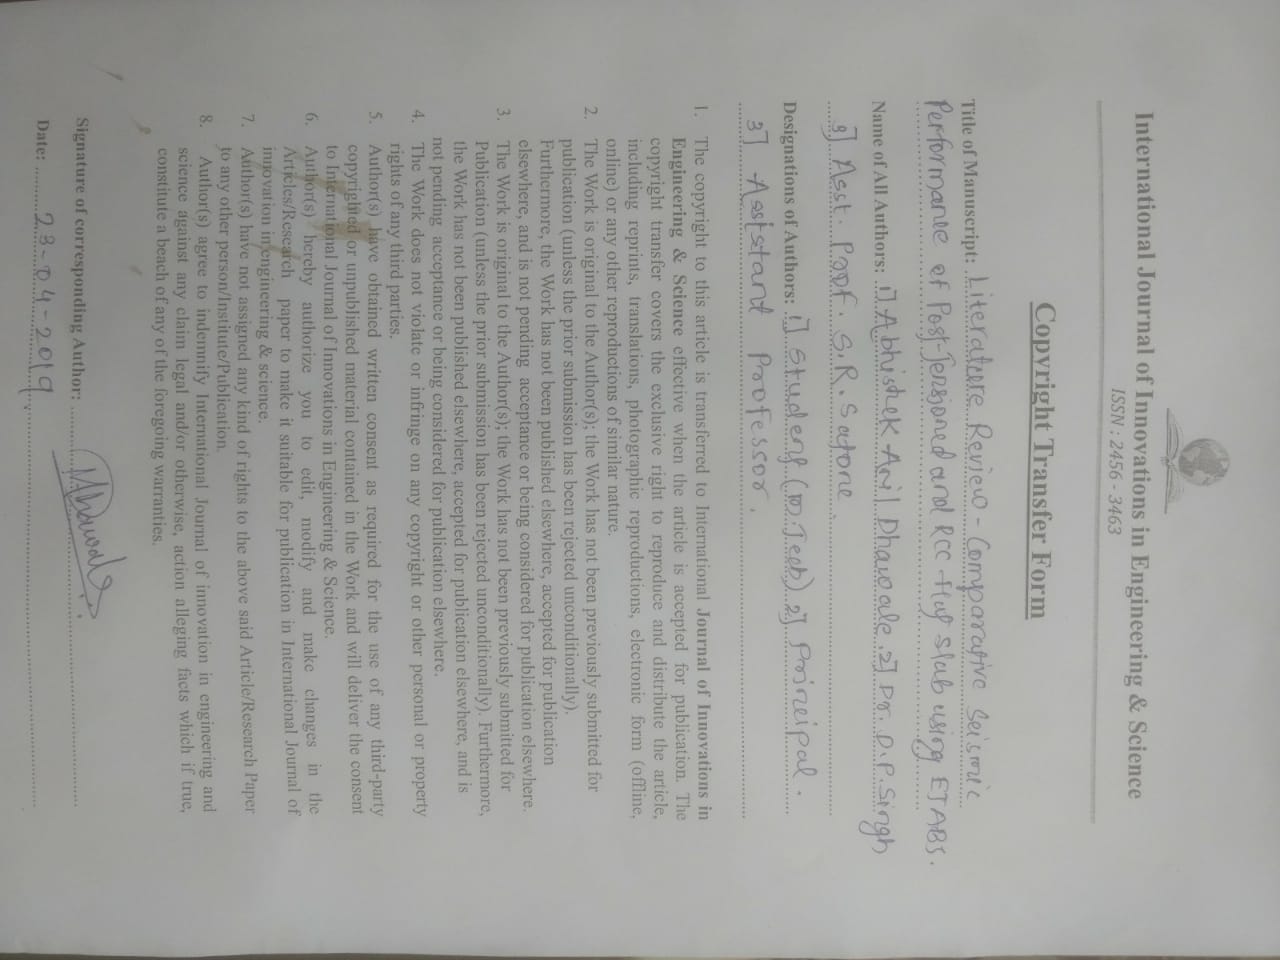 International Journal of Innovations in Engineering & Science
ISSN : 2456-3463
Copyright Transfer Form
Title of Manuscript: Literature Review - Comparative Seismic
Performance of Post-Tensioned and RCC flat slab using ETABS.
Name of All Authors: 1] Abhishek Anil Dhawale. 2] Dr. D.P. Singh
3] Asst. Prof. S.R. Satone.
Designations of Authors: 1] Student (M.Tech). 2] Principal.
3] Assistant Professor.
1. The copyright to this article is transferred to International Journal of Innovations in
Engineering & Science effective when the article is accepted for publication. The
copyright transfer covers the exclusive right to reproduce and distribute the article,
including reprints, translations, photographic reproductions, electronic form (offline,
online) or any other reproductions of similar nature.
2. The Work is original to the Author(s); the Work has not been previously submitted for
publication (unless the prior submission has been rejected unconditionally).
Furthermore, the Work has not been published elsewhere, accepted for publication
elsewhere, and is not pending acceptance or being considered for publication elsewhere.
3. The Work is original to the Author(s); the Work has not been previously submitted for
Publication (unless the prior submission has been rejected unconditionally). Furthermore,
the Work has not been published elsewhere, accepted for publication elsewhere, and is
not pending acceptance or being considered for publication elsewhere.
4. The Work does not violate or infringe on any copyright or other personal or property
rights of any third parties.
5. Author(s) have obtained written consent as required for the use of any third-party
copyrighted or unpublished material contained in the Work and will deliver the consent
to International Journal of Innovations in Engineering & Science.
6. Author(s) hereby authorize you to edit, modify and make changes in the
Articles/Research paper to make it suitable for publication in International Journal of
innovation in engineering & science.
7. Author(s) have not assigned any kind of rights to the above said Article/Research Paper
to any other person/Institute/Publication.
8. Author(s) agree to indemnify International Journal of innovation in engineering and
science against any claim legal and/or otherwise, action alleging facts which if true,
constitute a beach of any of the foregoing warranties.
Signature of corresponding Author:
Date: 23-04-2019